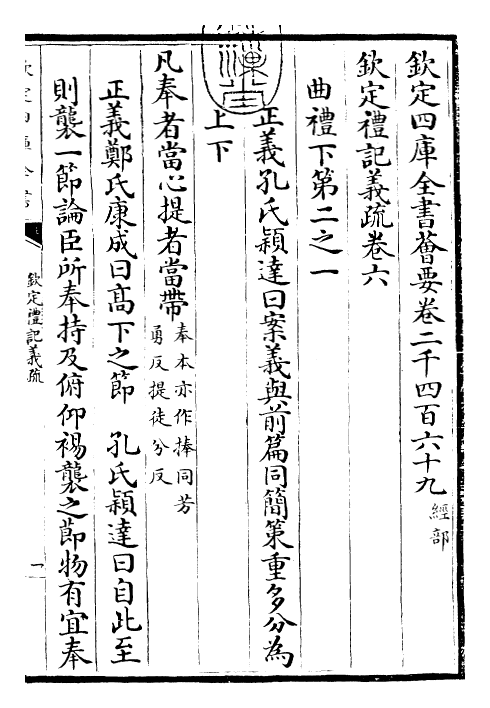 欽定四庫全書薈要卷二千四百六十九 經部
欽定禮記義疏卷六
曲禮下第二之一
正義孔氏穎達曰案義與前篇同簡策重多分為
上下
凡奉者當心提者當帶 奉本亦作捧同芳
勇反提徒兮反
正義鄭氏康成曰高下之節 孔氏穎達曰自此至
則襲一節論臣所奉持及俯仰裼襲之節物有宜奉
欽定四庫全書
欽定禮記義疏
一